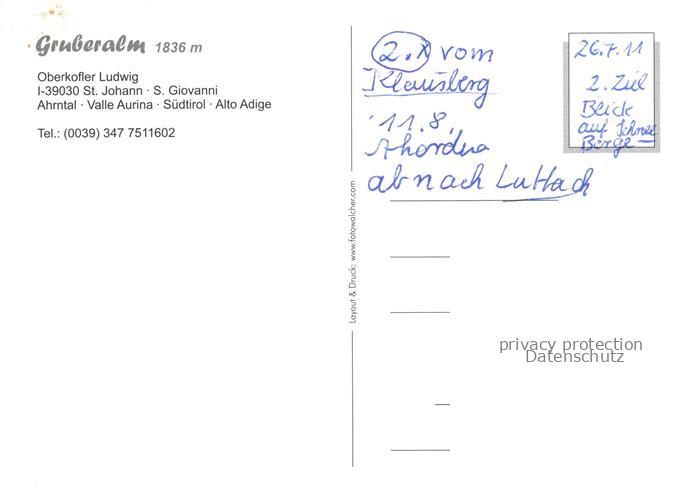 Gruberalm 1836 m
Oberkofler Ludwig
I-39030 St. Johann · S. Giovanni
Ahrntal · Valle Aurina · Südtirol · Alto Adige
Tel.: (0039) 347 7511602
Layout & Druck: www.fotowalcher.com
2.x vom
Klausberg
11.8.
ab nach Luttach
26.7.11
2. Ziel
Blick
auf Schnee
Berge
privacy protection
Datenschutz